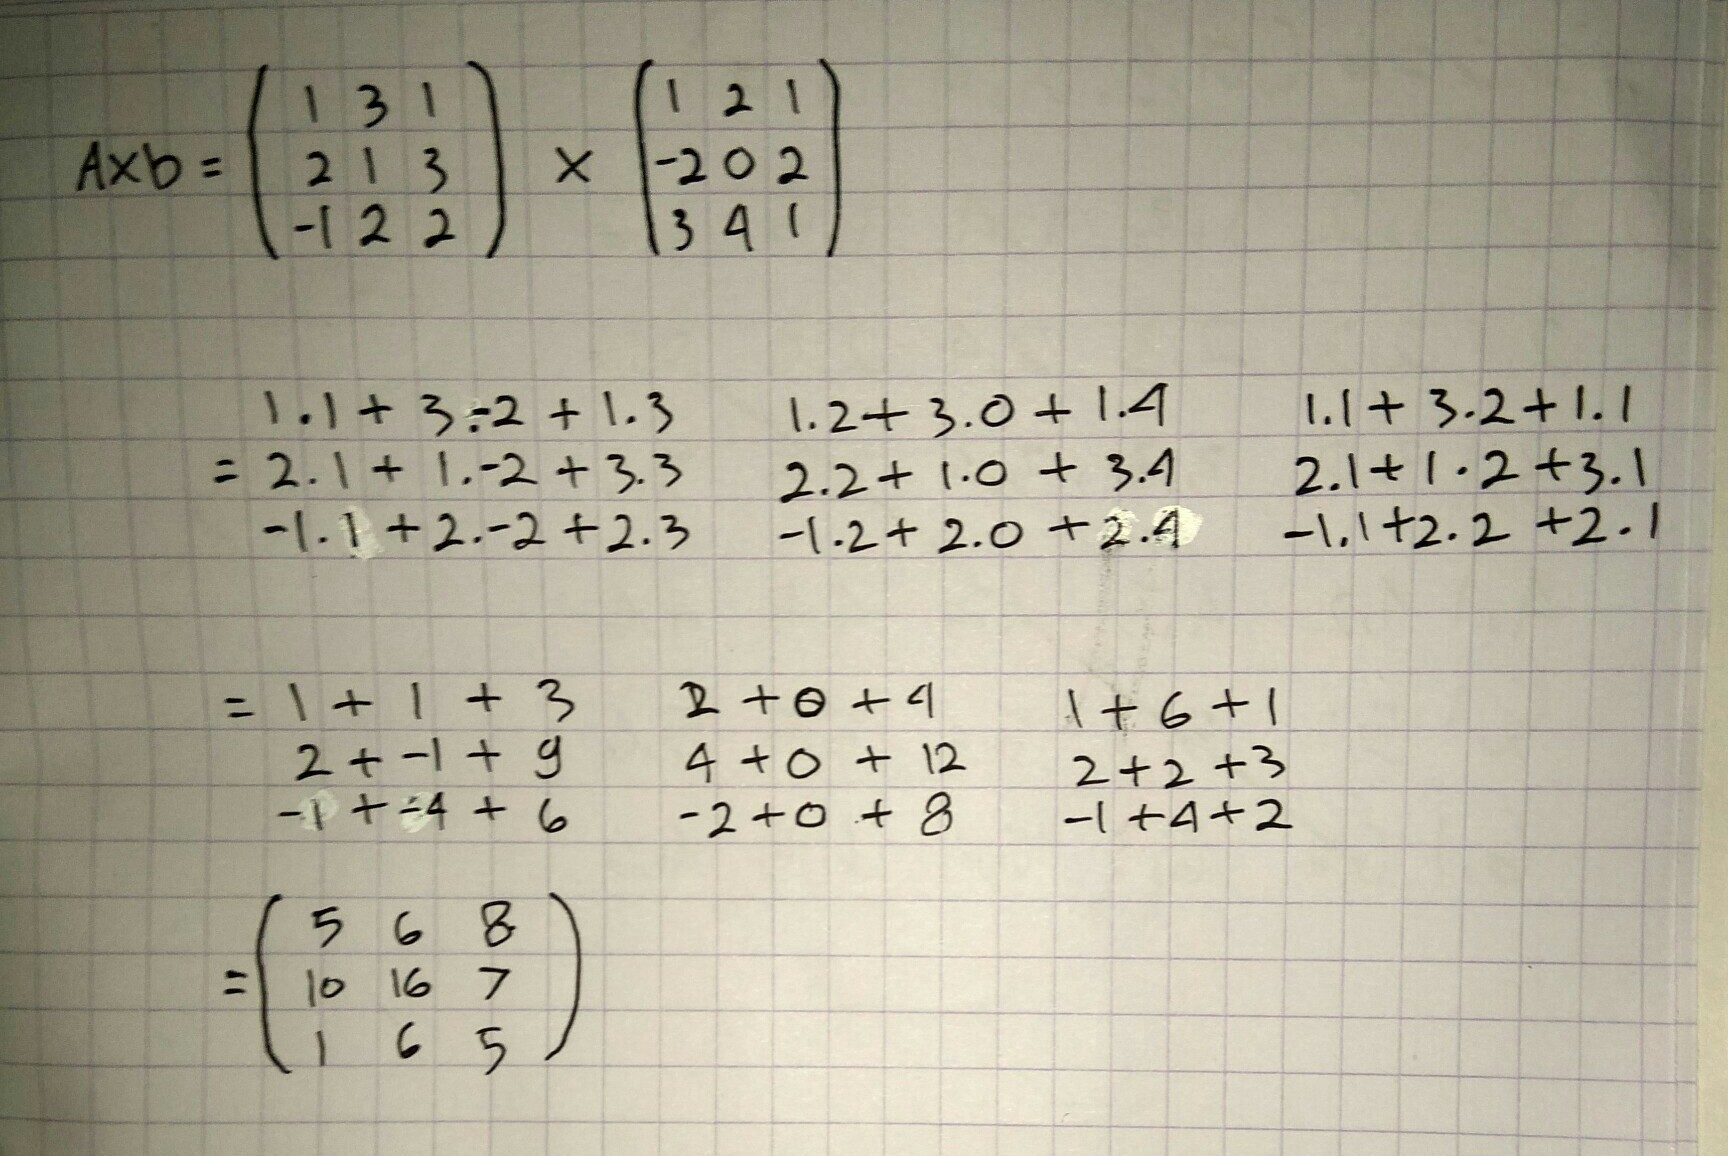 1 3 1 1 2 1
Axb = 2 1 3 x -2 0 2
-1 2 2 3 4 1
1.1 + 3.-2 + 1.3 1.2 + 3.0 + 1.4 1.1 + 3.2 + 1.1
= 2.1 + 1.-2 + 3.3 2.2 + 1.0 + 3.4 2.1 + 1.2 + 3.1
-1.1 + 2.-2 + 2.3 -1.2 + 2.0 + 2.4 -1.1 + 2.2 + 2.1
= 1 + 1 + 3 2 + 0 + 4 1 + 6 + 1
2 + -1 + 9 4 + 0 + 12 2 + 2 + 3
-1 + -4 + 6 -2 + 0 + 8 -1 + 4 + 2
5 6 8
= 10 16 7
1 6 5